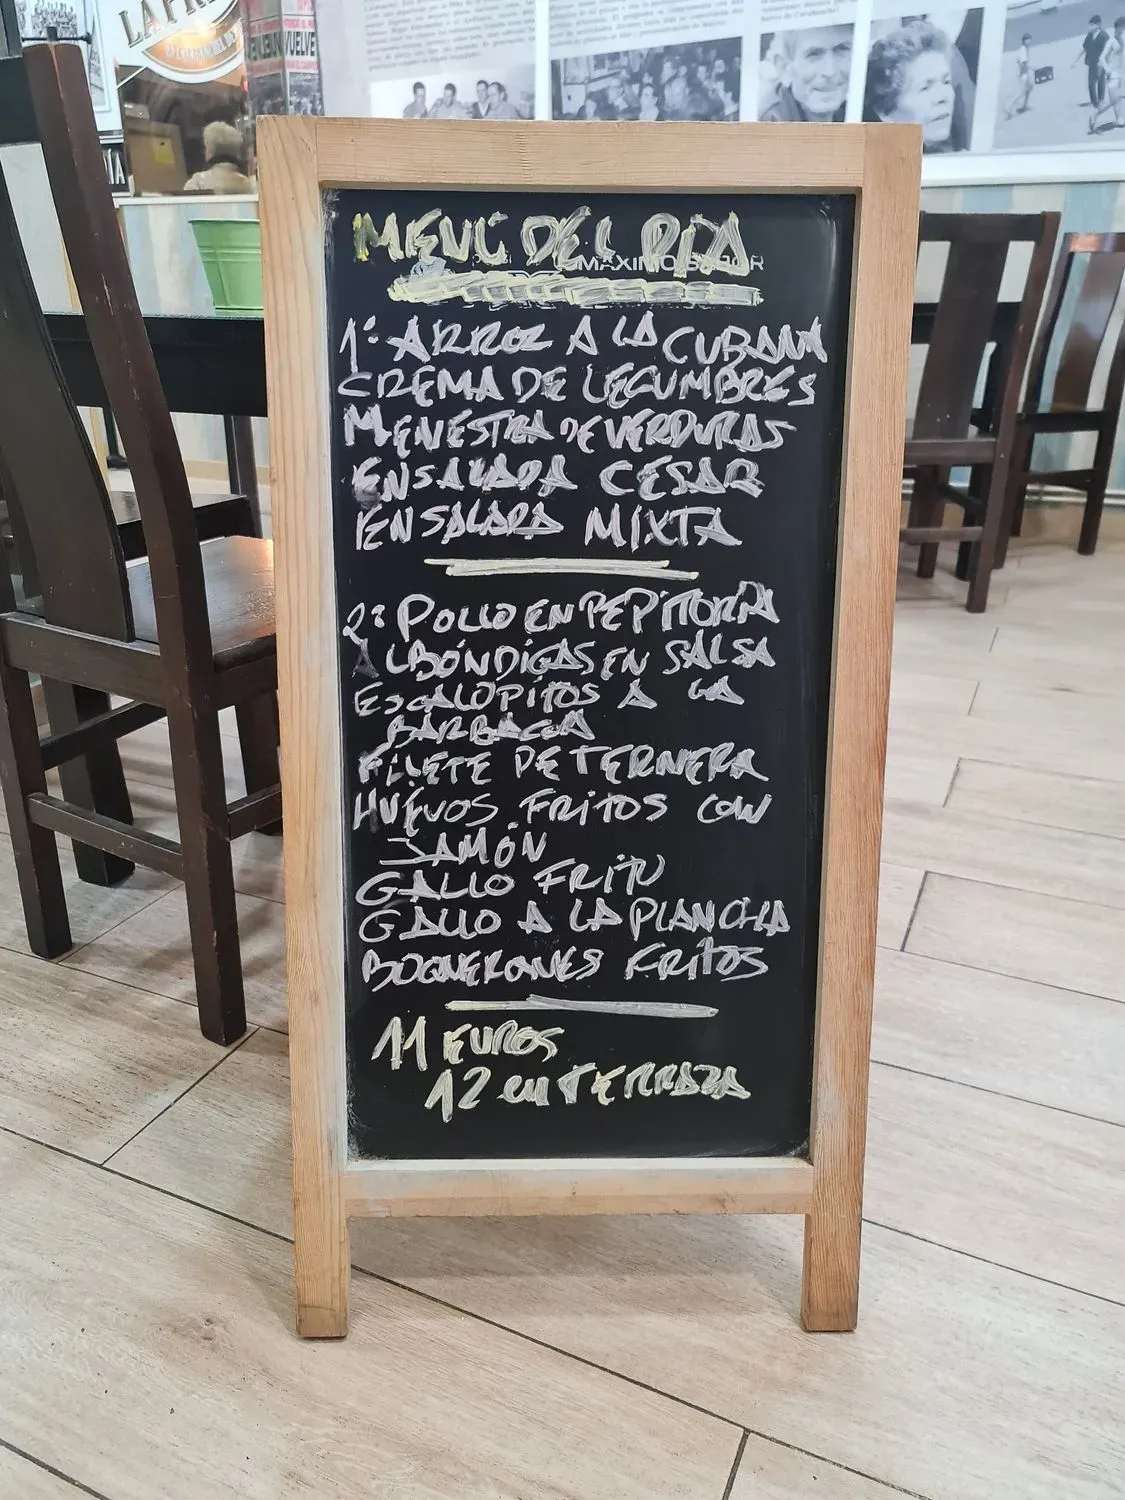 LA PR
MENÚ DEL DIA
MAXIMO SABOR
1º ARROZ A LA CUBANA
CREMA DE LEGUMBRES
MENESTRA DE VERDURAS
ENSALADA CESAR
ENSALADA MIXTA
2º POLLO EN PEPITORIA
ALBÓNDIGAS EN SALSA
ESCALOPITOS A LA
BARBACOA
FILETE DE TERNERA
HUEVOS FRITOS CON
JAMÓN
GALLO FRITO
GALLO A LA PLANCHA
BOQUERONES FRITOS
11 EUROS
12 EN TERRAZA